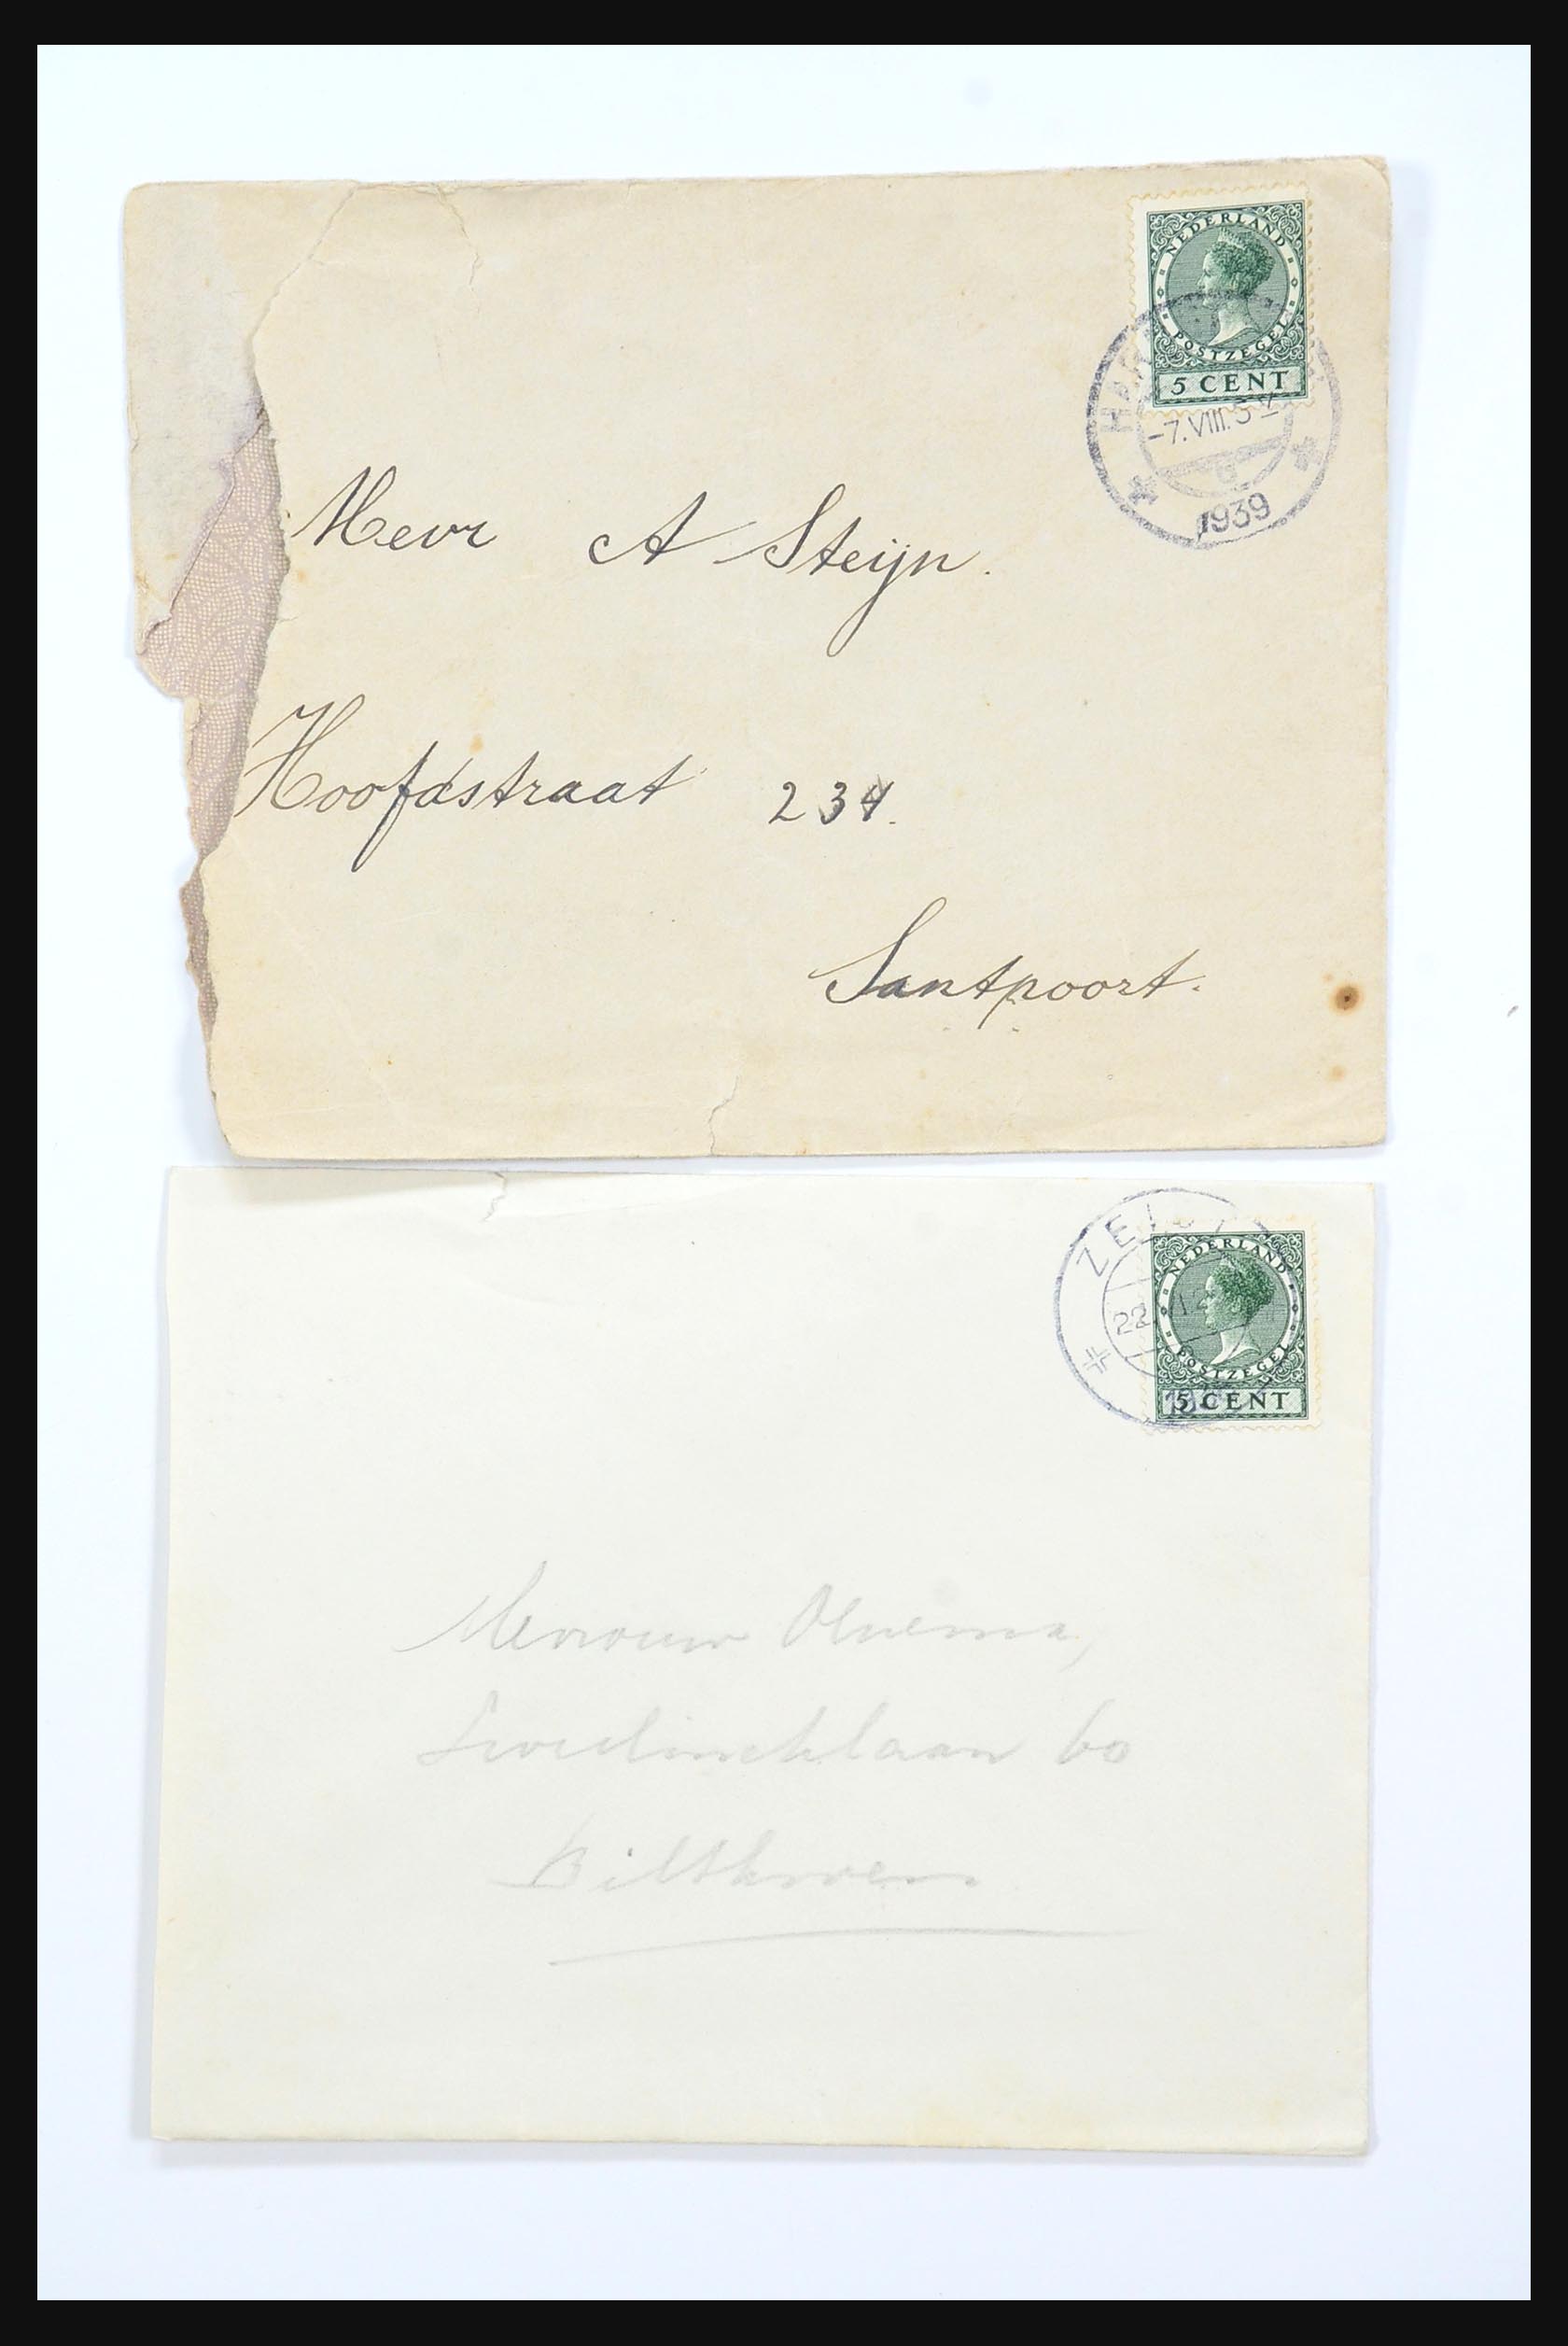 NEDERLAND
POSTZEGEL
5 CENT
-7.VIII.
1939
Mevr A Steijn.
Hoofdstraat 234.
Santpoort.
ZEIST
22
NEDERLAND
POSTZEGEL
5 CENT
Mevrouw
60
Bilthoven